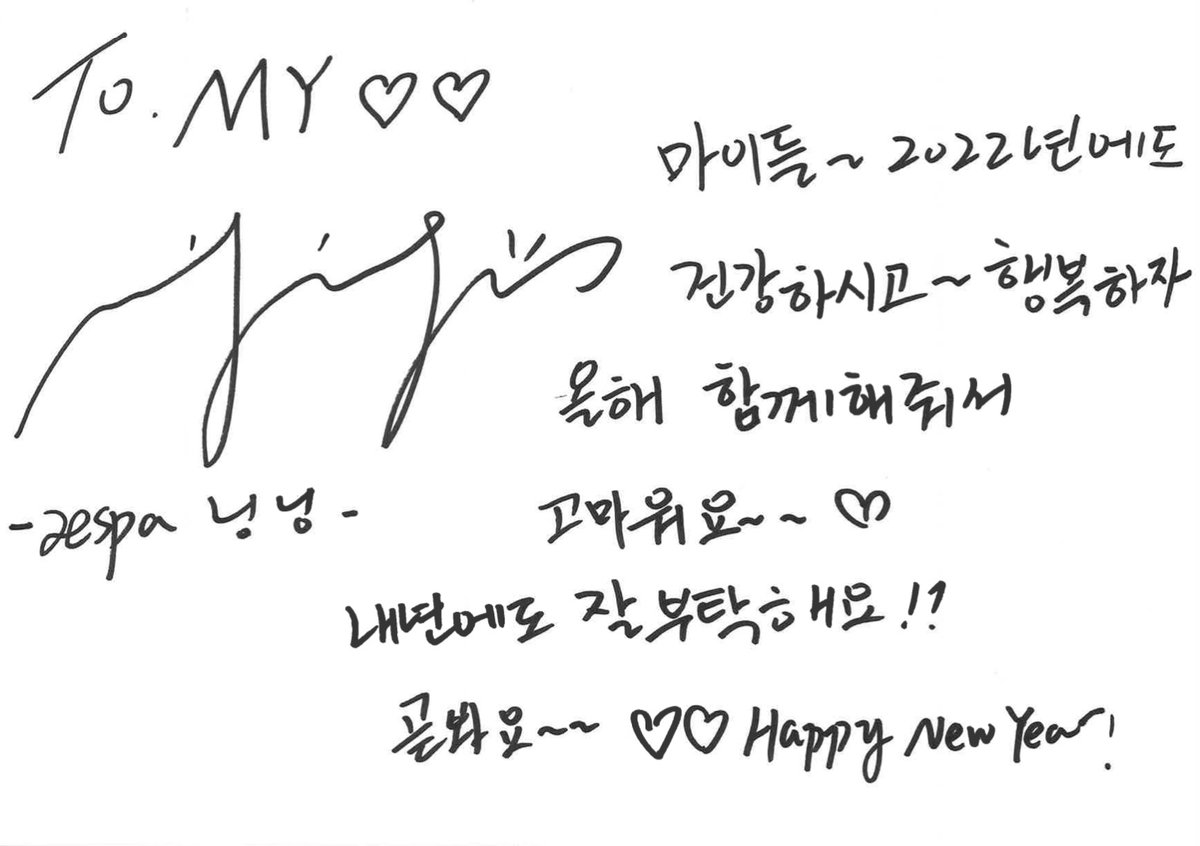 To. MY ♡♡
마이들~ 2022년에도
건강하시고~ 행복하자
올해 함께해줘서
고마워요~~ ♡
-aespa 닝닝-
내년에도 잘 부탁해요!!
곧봐요~~ ♡♡ Happy New Year!